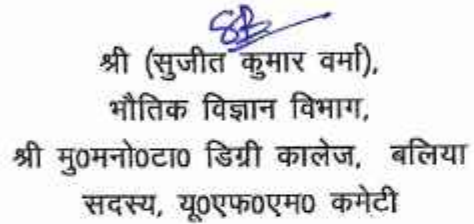 श्री (सुजीत कुमार वर्मा),
भौतिक विज्ञान विभाग,
श्री मु0मनो0टा0 डिग्री कालेज, बलिया
सदस्य, यू0एफ0एम0 कमेटी